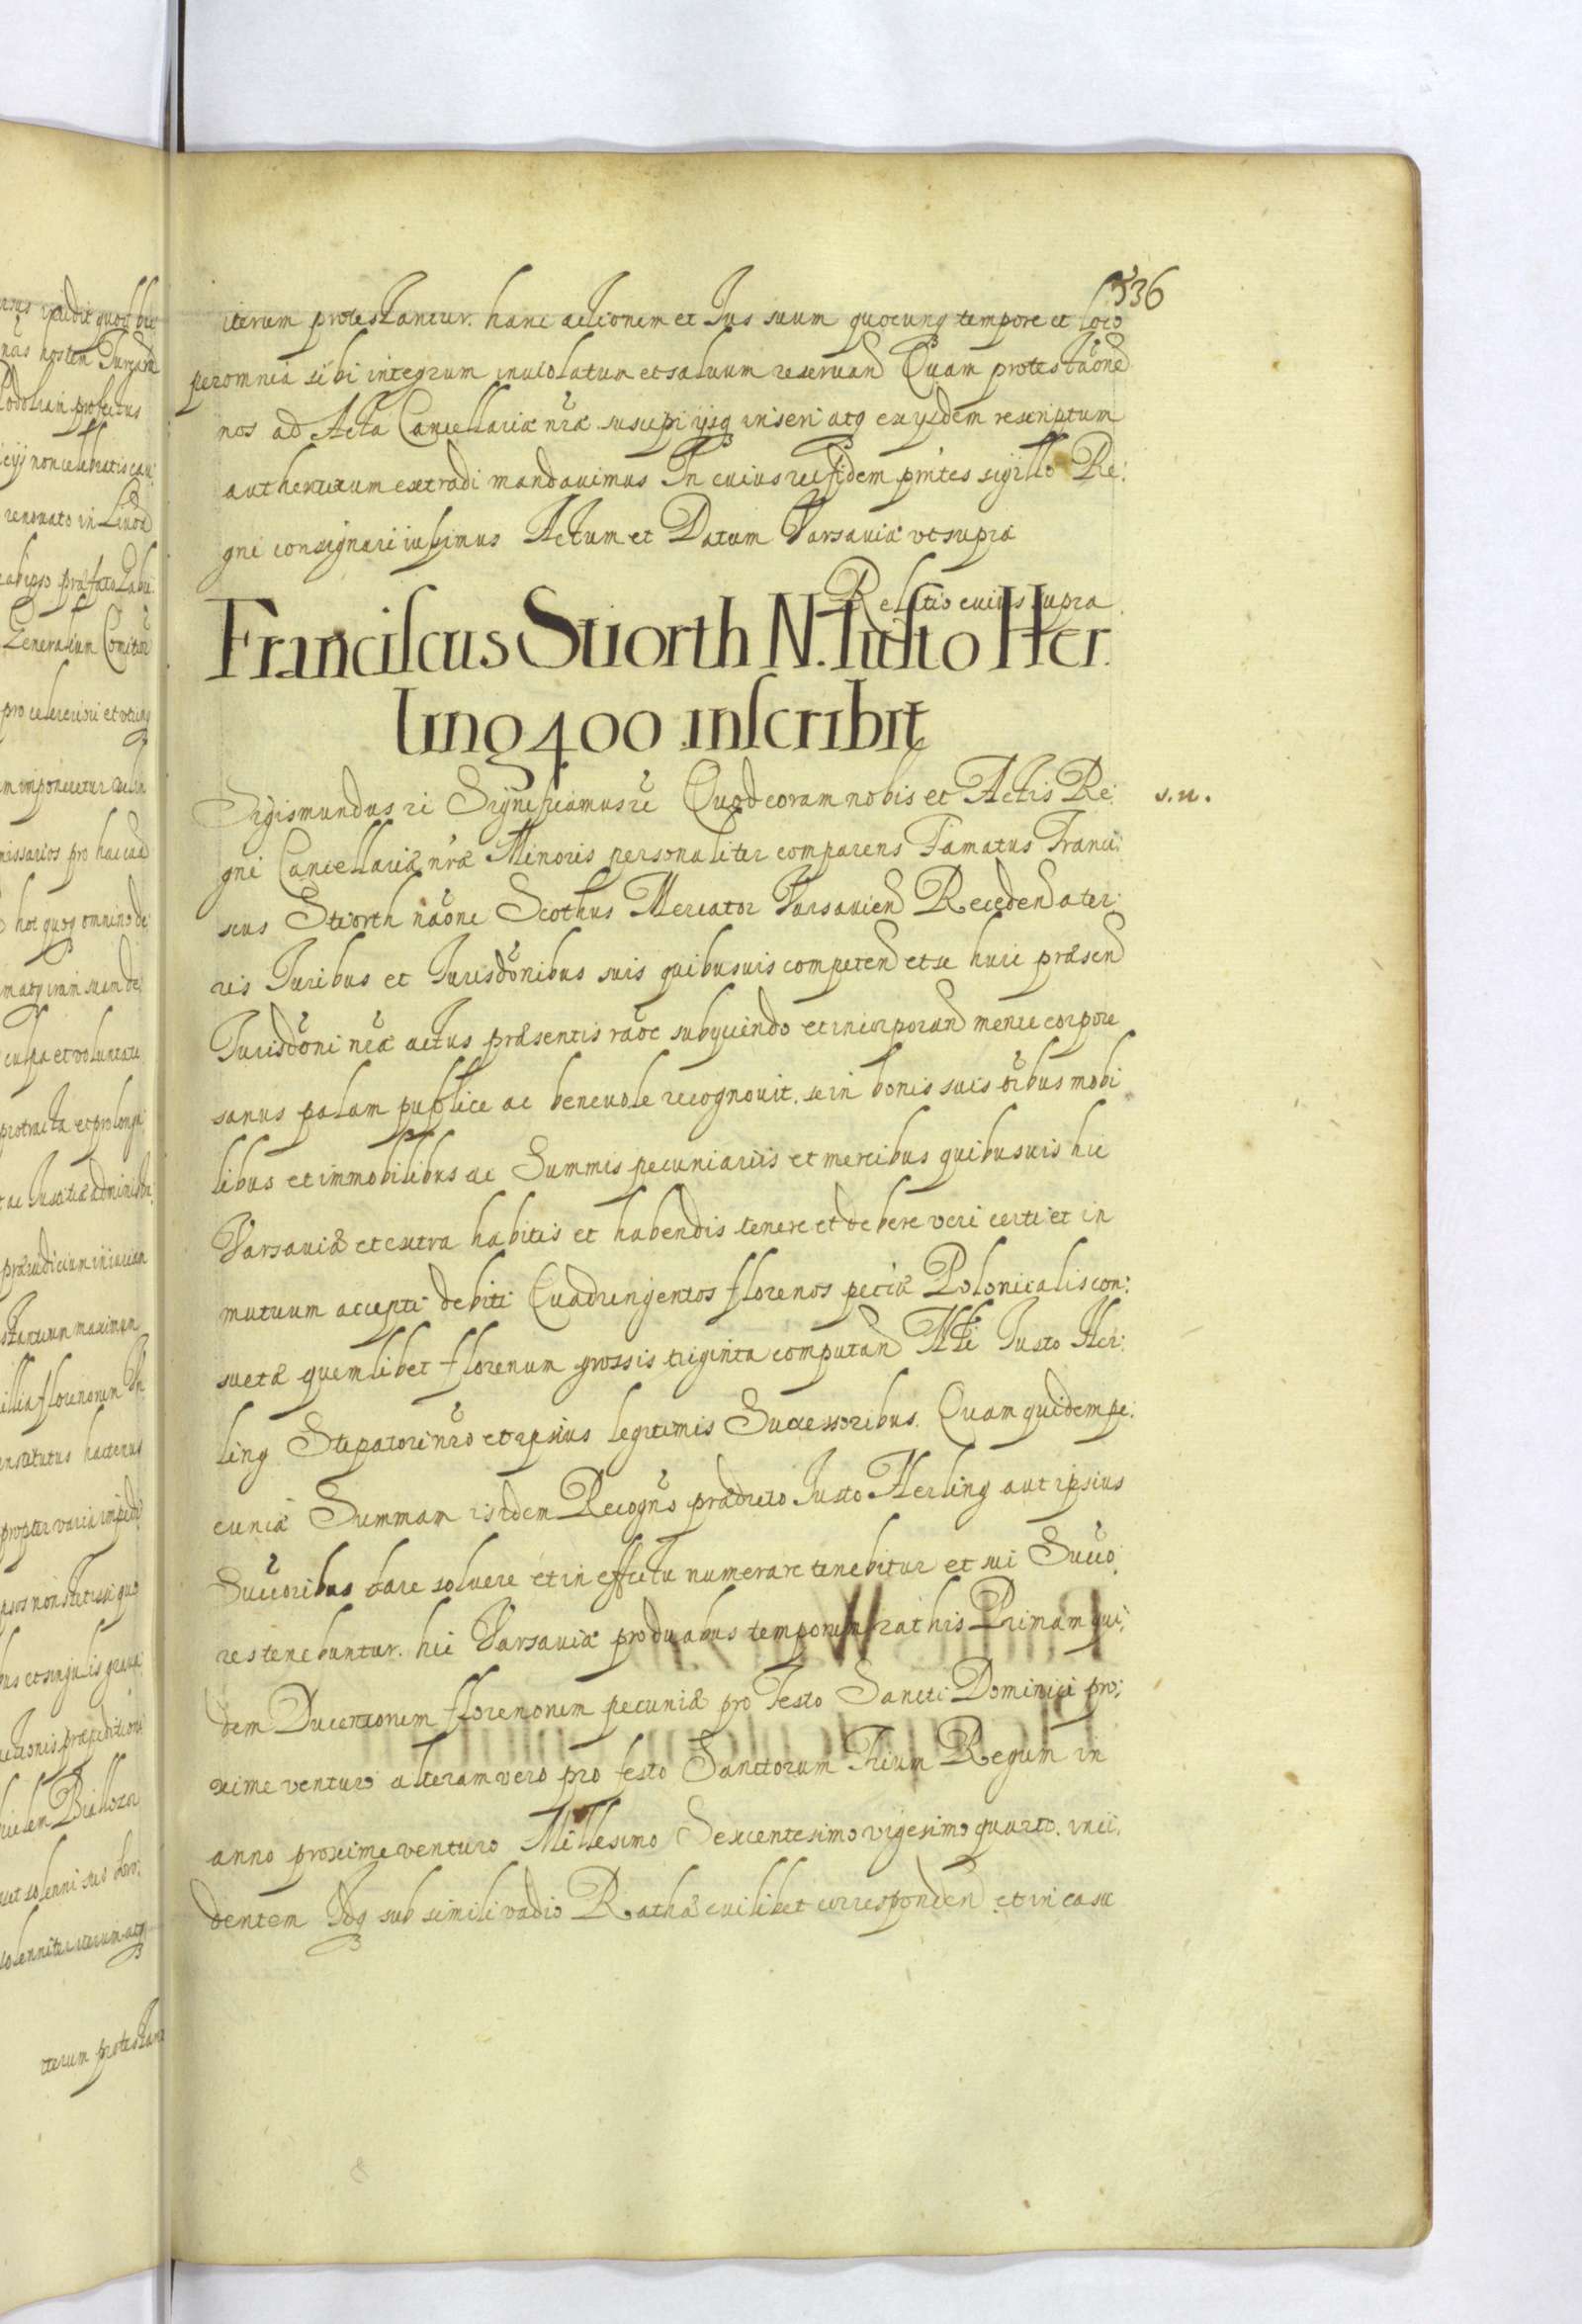 336
iterum protestantur. hanc actionem et Jus suum quocunq tempore et loco
peromnia sibi integrum inuiolatum et saluum reseruand Quam protestaone
nos ad Acta Cancellariæ nræ suscipi ijsq inseri atq ex ijsdem rescriptum
authenticum extradi mandauimus In cuius rei fidem pntes sigillo Re:
gni consignari iussimus Actum et Datum Varsauiæ vt supra
Relatio cuius supra
Franciscus Stiorth N. Iusto Her.
ling 400 inscribit
Sigismundus rē Significamus rē Quod coram nobis et Actis Re:
s. n.
gni Cancellariæ nræ Minoris personaliter comparens Famatus Franci:
scus Stiorth naone Scothus Mercator Varsauien Recedend a ter:
ris Juribus et Jurisdonibus suis quibusuis competend et se huic præsend
Jurisdoni nræ actus præsentis raoe subyciendo et incorporand mente corpore
sanus palam publice ac beneuole recognouit. se in bonis suis oibus mobi
libus et immobilibus ac Summis pecuniariis et mercibus quibusuis hic
Varsauiæ et extra habitis et habendis tenere et debere veri certi et in
mutuum accepti debiti Quadringentos florenos peciæ Polonicalis con:
suetæ quemlibet florenum grossis triginta computand Iusto Her:
ling Stipatori nro et ipsius legitimis Successoribus. Quam quidem pe:
cuniæ Summam isdem Recogns prædicto Iusto Herling aut ipsius
Succoribus dare soluere et in effectu numerare tenebitur et sui Succo:
res tenebuntur. hic Varsauiæ pro duabus temporum rathis Primam qui:
dem Ducentorum florenorum pecuniæ pro Festo Sancti Dominici pro:
xime venturo alteram vero pro festo Sanctorum Trium Regum in
anno proxime venturo Millesimo Sexcentesimo vigesimo quarto. inci:
dentem Idq sub simili vadio Rathæ cuilibet correspondend et in casu